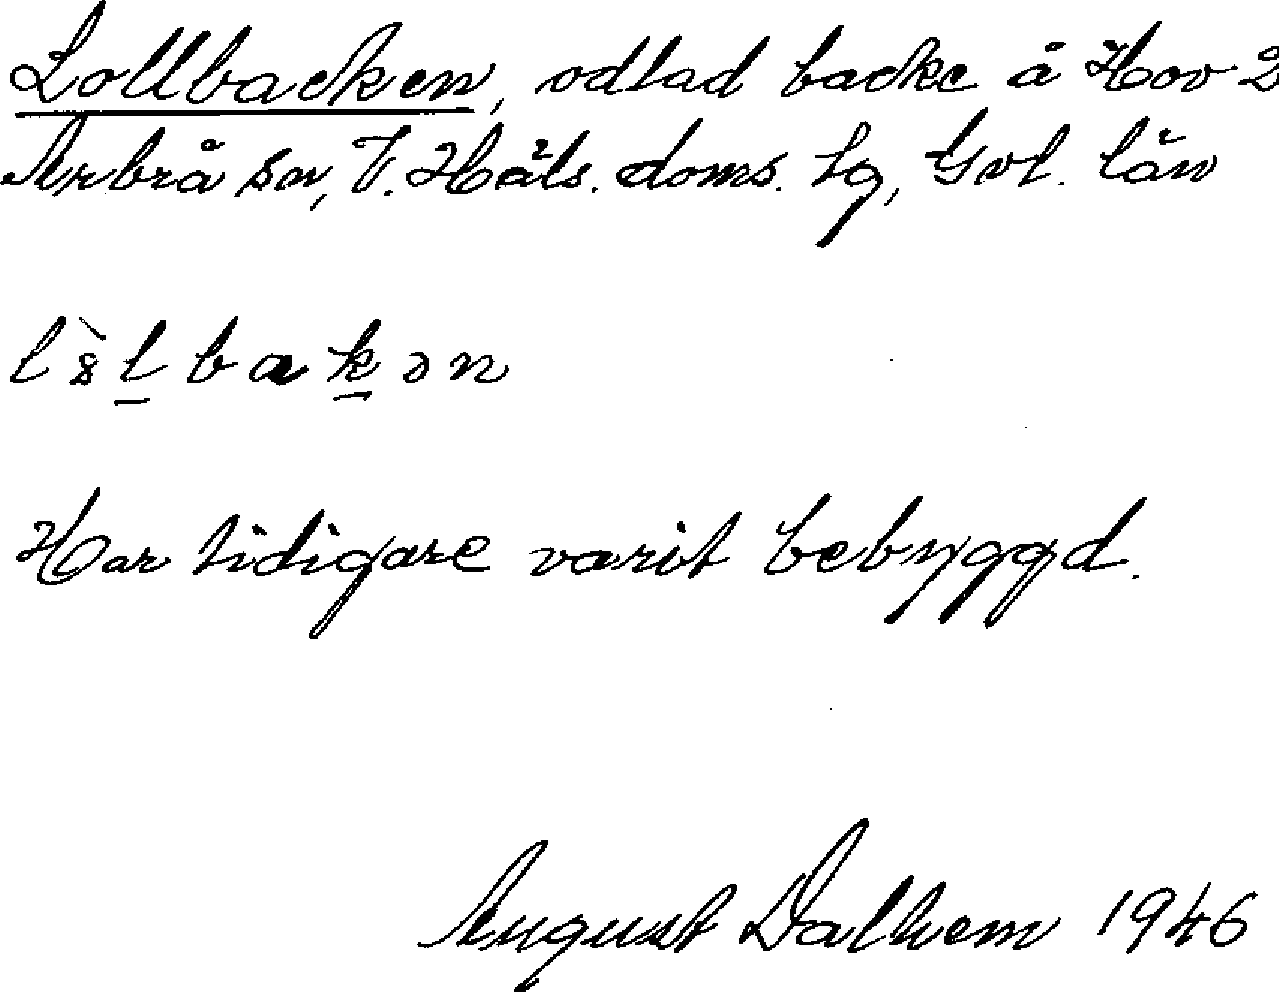 Lollbacken, odlad backe å Hov 2
Arbrå sn, V. Häls. doms. tg, Gvl. län
bakən
Har tidigare varit bebyggd.
August Dalhem 1946